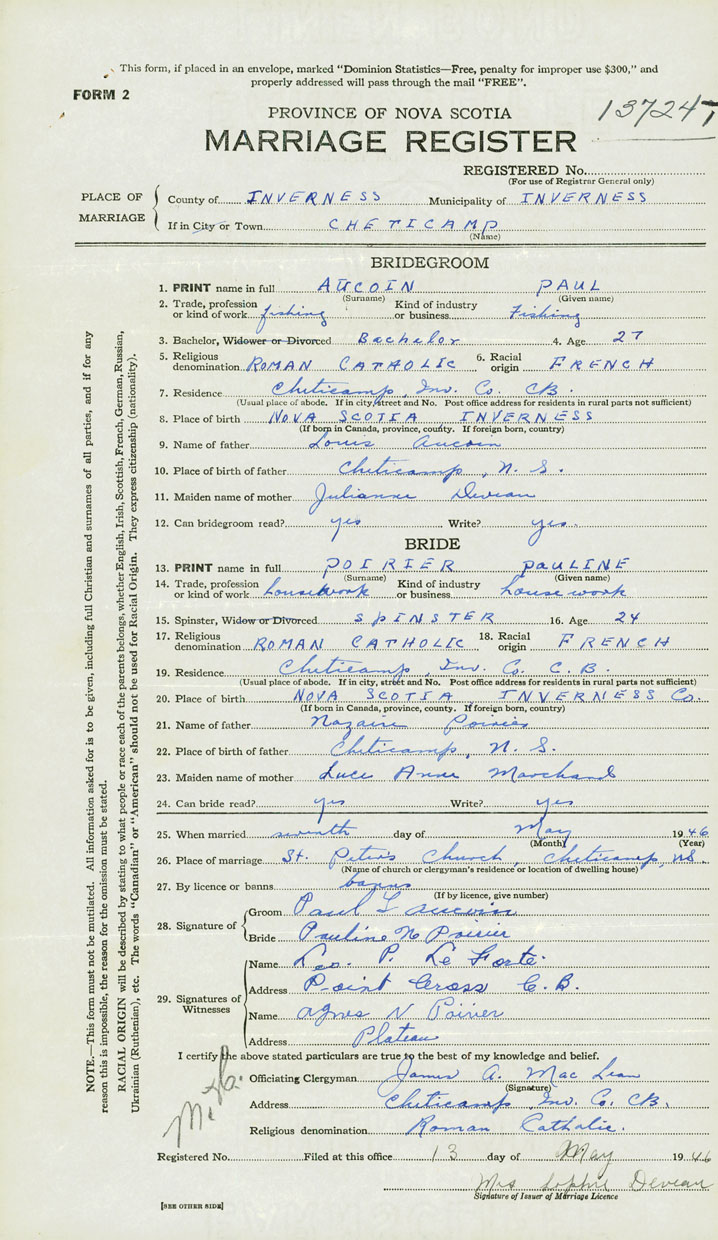 This form, if placed in an envelope, marked "Dominion Statistics—Free, penalty for improper use $300," and
properly addressed will pass through the mail "FREE".
FORM 2
PROVINCE OF NOVA SCOTIA
137247
MARRIAGE REGISTER
REGISTERED No.
(For use of Registrar General only)
PLACE OF MARRIAGE
County of INVERNESS Municipality of INVERNESS
If in City or Town CHETICAMP
(Name)
BRIDEGROOM
1. PRINT name in full AUCOIN PAUL
(Surname) (Given name)
2. Trade, profession or kind of work fishing Kind of industry or business Fishing
3. Bachelor, Widower or Divorced Bachelor 4. Age 27
5. Religious denomination ROMAN CATHOLIC 6. Racial origin FRENCH
7. Residence Cheticamp, Inv. Co. CB.
(Usual place of abode. If in city, street and No. Post office address for residents in rural parts not sufficient)
8. Place of birth NOVA SCOTIA INVERNESS
(If born in Canada, province, county. If foreign born, country)
9. Name of father Louis Aucoin
10. Place of birth of father Cheticamp, N. S.
11. Maiden name of mother Julianne Deveau
12. Can bridegroom read? yes Write? yes.
BRIDE
13. PRINT name in full POIRIER PAULINE
(Surname) (Given name)
14. Trade, profession or kind of work housework Kind of industry or business house work
15. Spinster, Widow or Divorced SPINSTER 16. Age 24
17. Religious denomination ROMAN CATHOLIC 18. Racial origin FRENCH
19. Residence Cheticamp, Inv. Co. C.B.
(Usual place of abode. If in city, street and No. Post office address for residents in rural parts not sufficient)
20. Place of birth NOVA SCOTIA, INVERNESS Co.
(If born in Canada, province, county. If foreign born, country)
21. Name of father Nazaire Poirier
22. Place of birth of father Cheticamp, N. S.
23. Maiden name of mother Luce Anne Marchand
24. Can bride read? yes Write? yes
25. When married seventh day of May 1946
(Month) (Year)
26. Place of marriage St. Peter's Church, Cheticamp, NS.
(Name of church or clergyman's residence or location of dwelling house)
27. By licence or banns banns
(If by licence, give number)
28. Signature of
Groom Paul L Aucoin
Bride Pauline N Poirier
29. Signatures of Witnesses
Name Leo. P. Le Forte.
Address Point Cross C.B.
Name Agnes N Poirier
Address Plateau
I certify the above stated particulars are true to the best of my knowledge and belief.
Officiating Clergyman James A. Mac Lean
(Signature)
Address Cheticamp Inv. Co. CB.
Religious denomination Roman Catholic.
Registered No. Filed at this office 13 day of May 1946
Mrs Sophie Deveau
Signature of Issuer of Marriage Licence
[SEE OTHER SIDE]
NOTE.—This form must not be mutilated. All information asked for is to be given, including full Christian and surnames of all parties, and if for any
reason this is impossible, the reason for the omission must be stated.
RACIAL ORIGIN will be described by stating to what people or race each of the parents belongs, whether English, Irish, Scottish, French, German, Russian,
Ukrainian (Ruthenian), etc. The words "Canadian" or "American" should not be used for Racial Origin. They express citizenship (nationality).